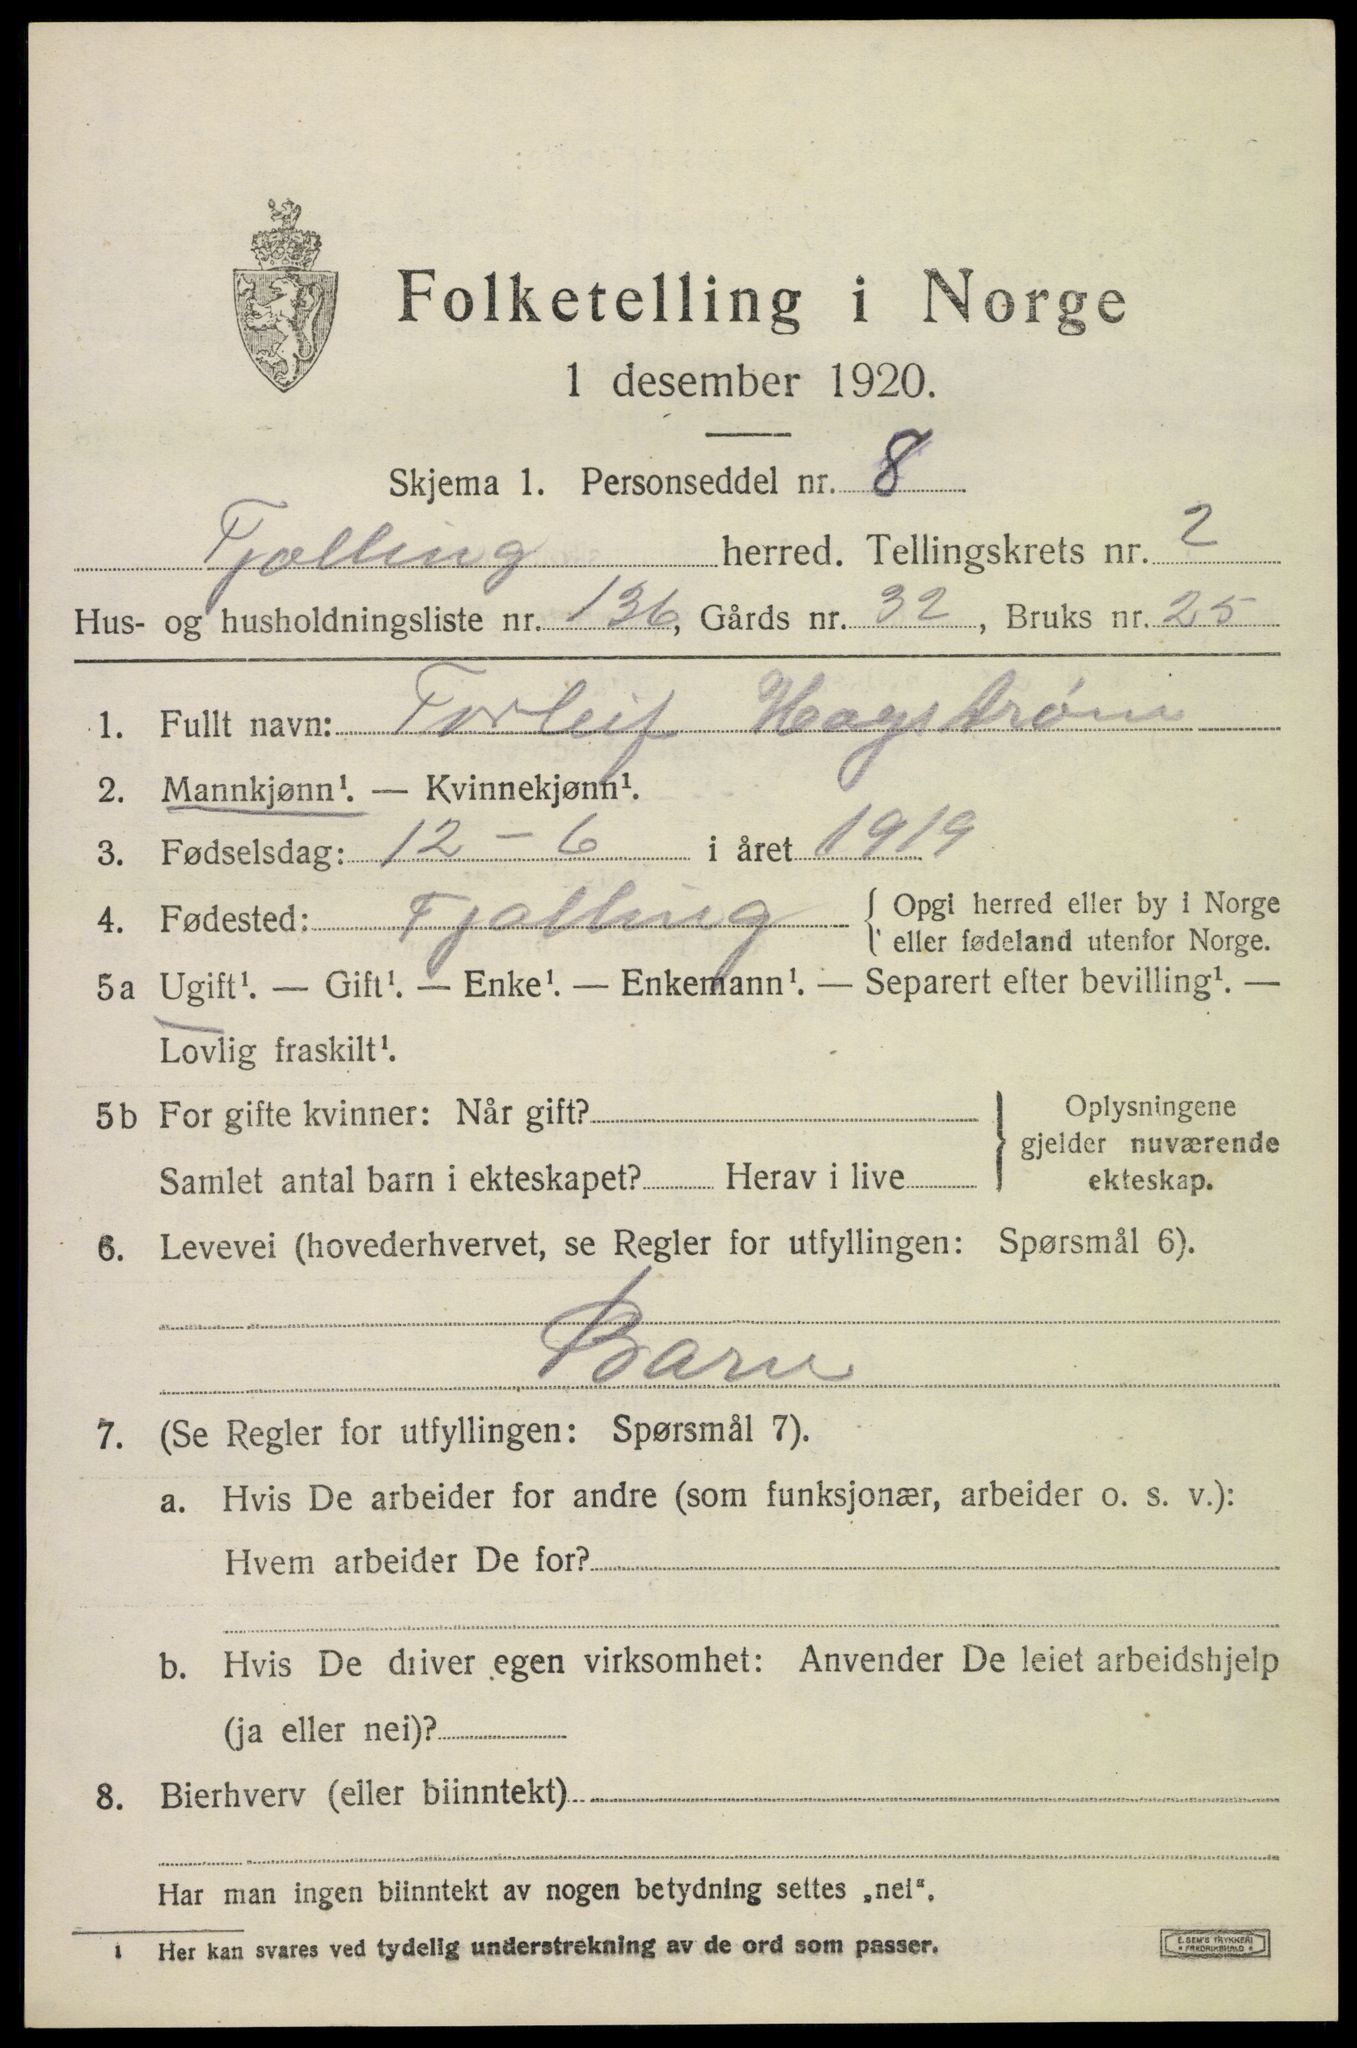 Folketelling i Norge
1 desember 1920.
Skjema 1. Personseddel nr. 8
Tjølling herred. Tellingskrets nr. 2
Hus- og husholdningsliste nr. 136, Gårds nr. 32, Bruks nr. 25
1. Fullt navn: Torleif Hagstrøm
2. Mannkjønn¹. — Kvinnekjønn¹.
3. Fødselsdag: 12 - 6 i året 1919
4. Fødested: Tjølling { Opgi herred eller by i Norge
eller fødeland utenfor Norge.
5a Ugift¹. — Gift¹. — Enke¹. — Enkemann¹. — Separert efter bevilling¹. —
Lovlig fraskilt¹.
5b For gifte kvinner: Når gift?
Samlet antal barn i ekteskapet? Herav i live
} Oplysningene
gjelder nuværende
ekteskap.
6. Levevei (hovederhvervet, se Regler for utfyllingen: Spørsmål 6).
Barn
7. (Se Regler for utfyllingen: Spørsmål 7).
a. Hvis De arbeider for andre (som funksjonær, arbeider o. s. v.):
Hvem arbeider De for?
b. Hvis De driver egen virksomhet: Anvender De leiet arbeidshjelp
(ja eller nei)?
8. Bierhverv (eller biinntekt)
Har man ingen biinntekt av nogen betydning settes „nei“.
1 Her kan svares ved tydelig understrekning av de ord som passer.
E. SEM'S TRYKKERI
FREDRIKSHALD